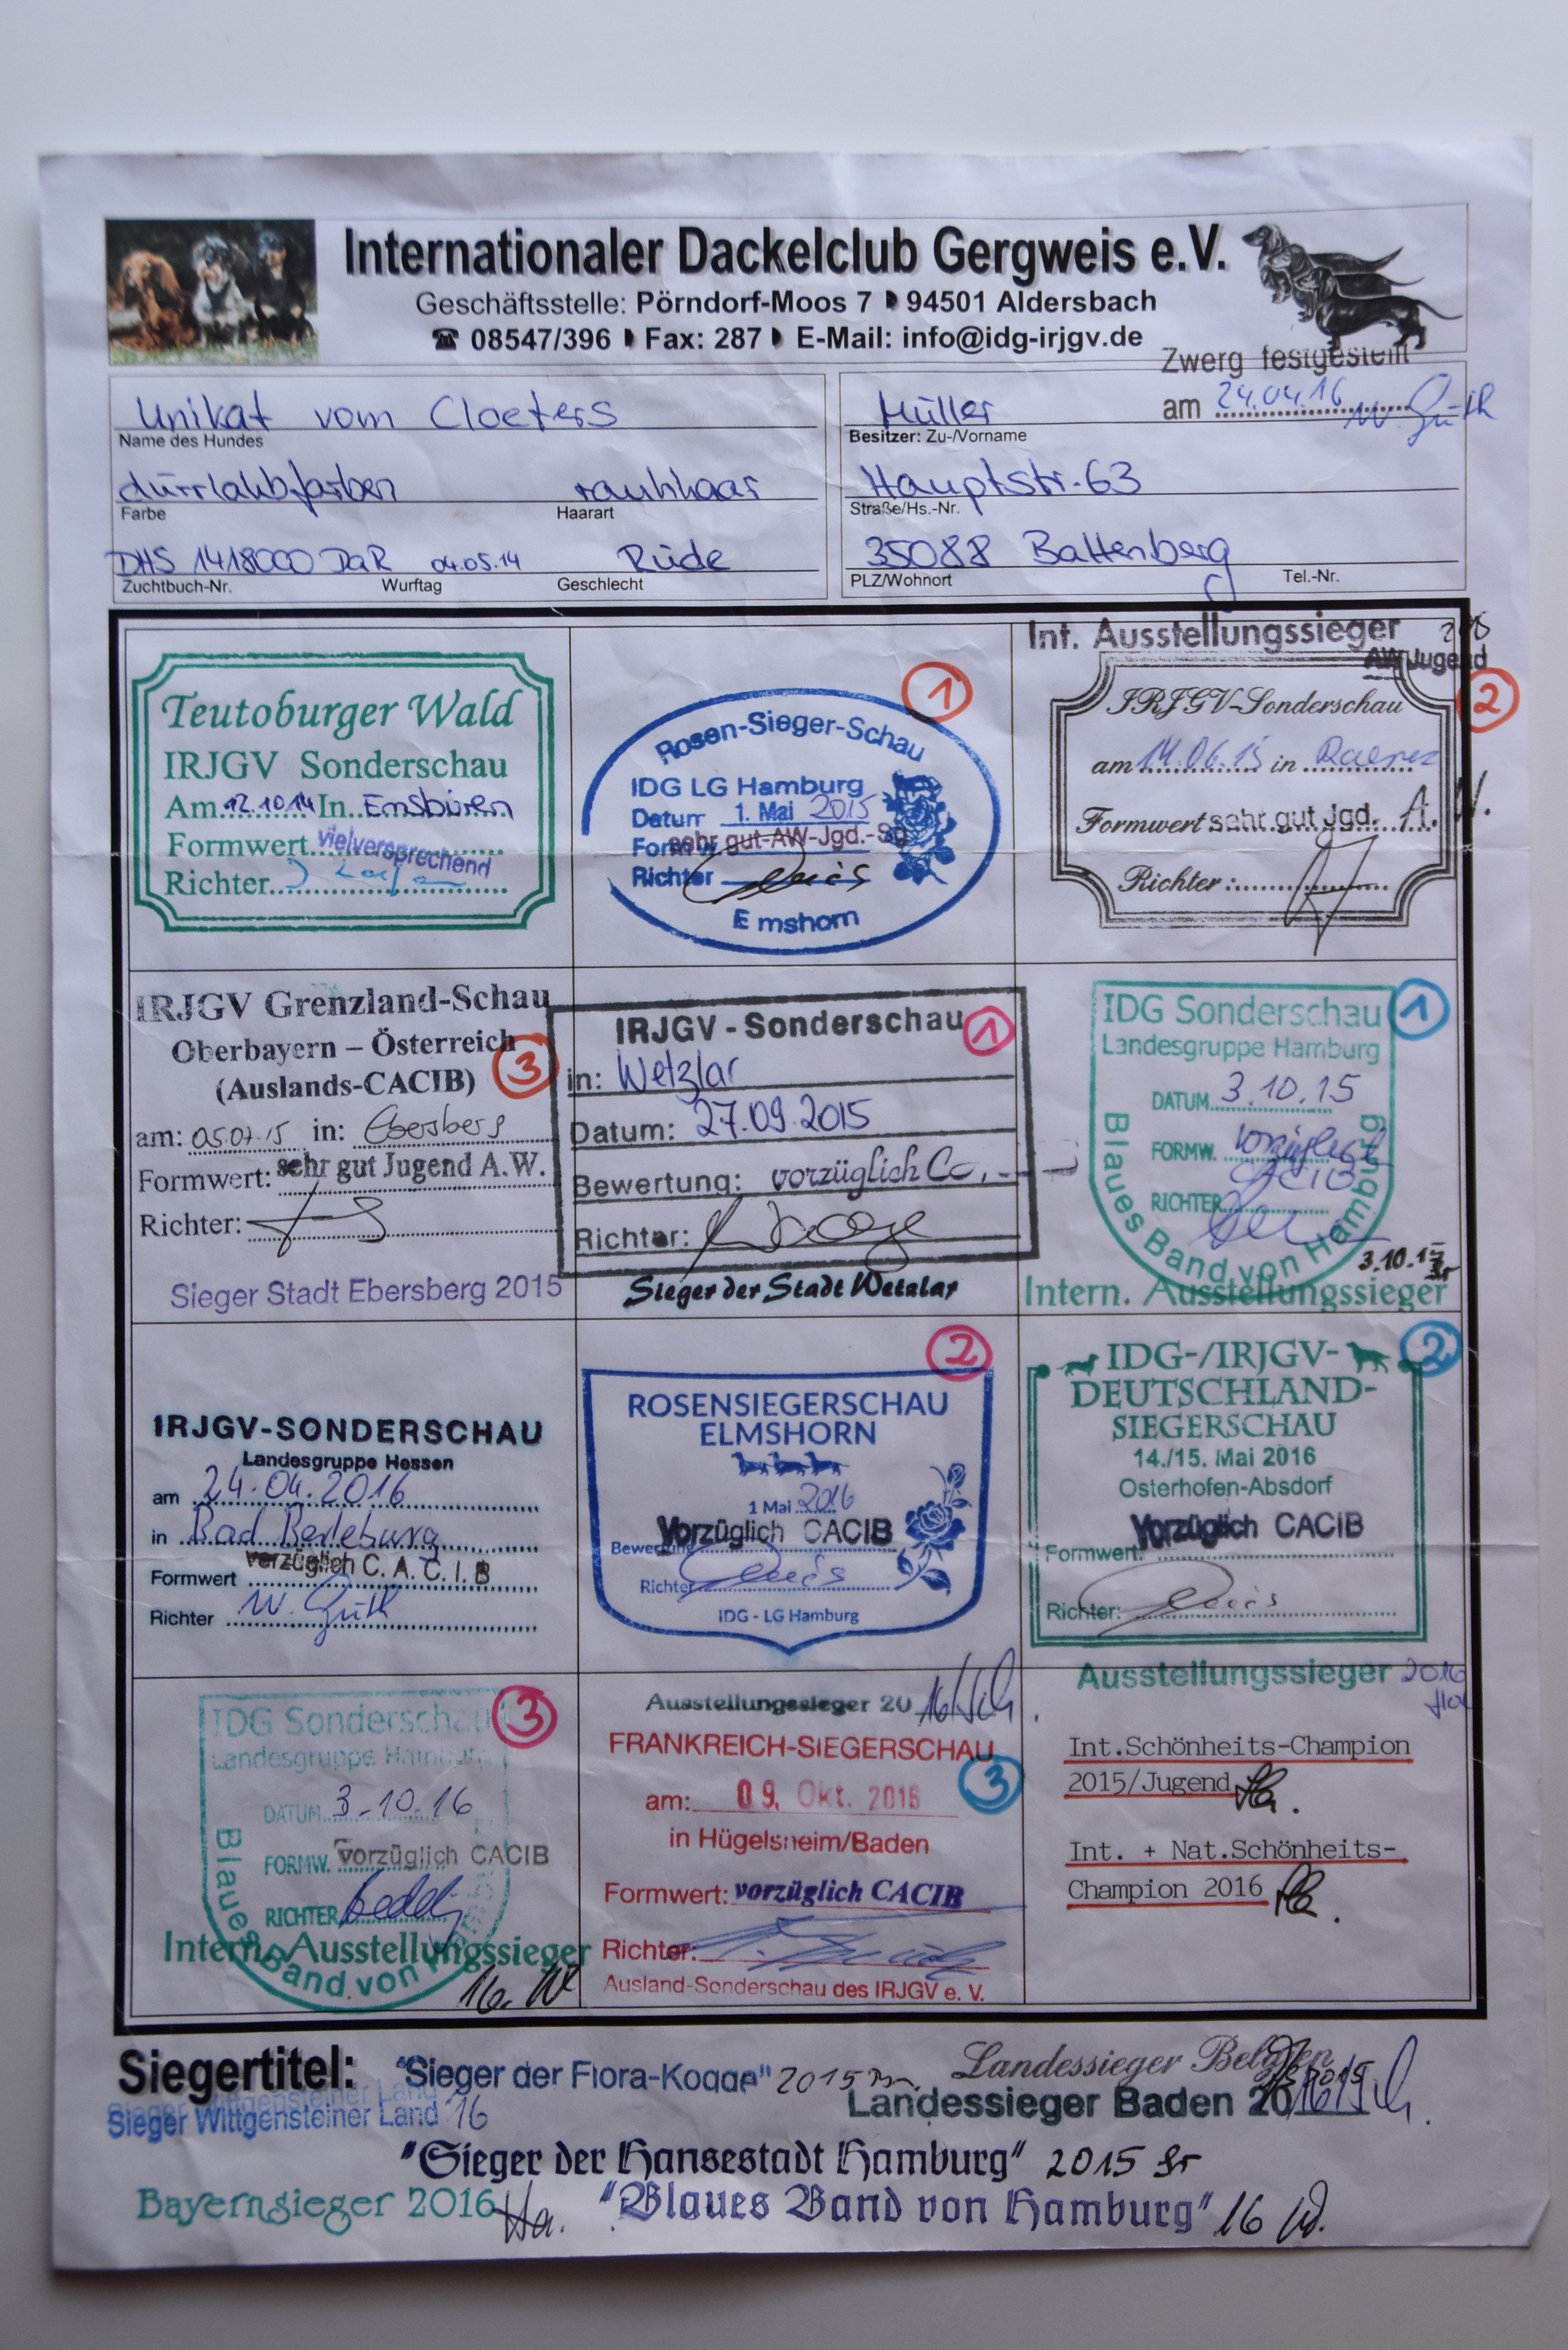 Internationaler Dackelclub Gergweis e.V.
Geschäftsstelle: Pörndorf-Moos 7 ◗ 94501 Aldersbach
☎ 08547/396 ◗ Fax: 287 ◗ E-Mail: info@idg-irjgv.de
Zwerg festgestellt
am 24.04.16 W. Güth
Unikat vom Cloeters
Name des Hundes
dürrlaubfarben rauhhaar
Farbe Haarart
DHS 1418000 DaR 04.05.14 Rüde
Zuchtbuch-Nr. Wurftag Geschlecht
Müller
Besitzer: Zu-/Vorname
Hauptstr. 63
Straße/Hs.-Nr.
35088 Battenberg
PLZ/Wohnort Tel.-Nr.
Teutoburger Wald
IRJGV Sonderschau
Am 12.10.14 In Emsbüren
Formwert vielversprechend
Richter
1
Rosen-Sieger-Schau
IDG LG Hamburg
Datum 1. Mai 2015
Formw sehr gut-AW-Jgd.-Sg
Richter
Elmshorn
Int. Ausstellungssieger
AW Jugend
2
IRJGV-Sonderschau
am 14.06.15 in Raeren
Formwert sehr gut Jgd. A. W.
Richter:
IRJGV Grenzland-Schau
Oberbayern – Österreich
(Auslands-CACIB)
3
am: 05.07.15 in: Ebersberg
Formwert: sehr gut Jugend A.W.
Richter:
Sieger Stadt Ebersberg 2015
IRJGV - Sonderschau
1
in: Wetzlar
Datum: 27.09.2015
Bewertung: vorzüglich Cc.
Richter:
Sieger der Stadt Wetzlar
IDG Sonderschau
1
Landesgruppe Hamburg
DATUM 3.10.15
FORMW. vorzüglich
CACIB
RICHTER
Blaues Band von Hamburg
3.10.15
Intern. Ausstellungssieger
IRJGV-SONDERSCHAU
Landesgruppe Hessen
am 24.04.2016
in Bad Berleburg
Formwert vorzüglich C. A. C. I. B
Richter W. Güth
2
ROSENSIEGERSCHAU
ELMSHORN
1 Mai 2016
Bewertung Vorzüglich CACIB
Richter
IDG - LG Hamburg
IDG-/IRJGV-
2
DEUTSCHLAND-
SIEGERSCHAU
14./15. Mai 2016
Osterhofen-Absdorf
Vorzüglich CACIB
Formwert:
Richter:
IDG Sonderschau
3
Landesgruppe Hamburg
DATUM 3.10.16
FORMW. vorzüglich CACIB
RICHTER
Blaues Band von
Intern. Ausstellungssieger
16. W
Ausstellungssieger 20 16
FRANKREICH-SIEGERSCHAU
3
am: 09. Okt. 2016
in Hügelsheim/Baden
Formwert: vorzüglich CACIB
Richter:
Ausland-Sonderschau des IRJGV e. V.
Ausstellungssieger 2016
Ha
Int.Schönheits-Champion
2015/Jugend Ha.
Int. + Nat.Schönheits-
Champion 2016 Ha.
Siegertitel: "Sieger der Flora-Kogge" 2015
Landessieger Belgien 2015
Sieger Wittgensteiner Land 16
Landessieger Baden 20 16
"Sieger der Hansestadt Hamburg" 2015
Bayernsieger 2016 Ha. "Blaues Band von Hamburg" 16 W.